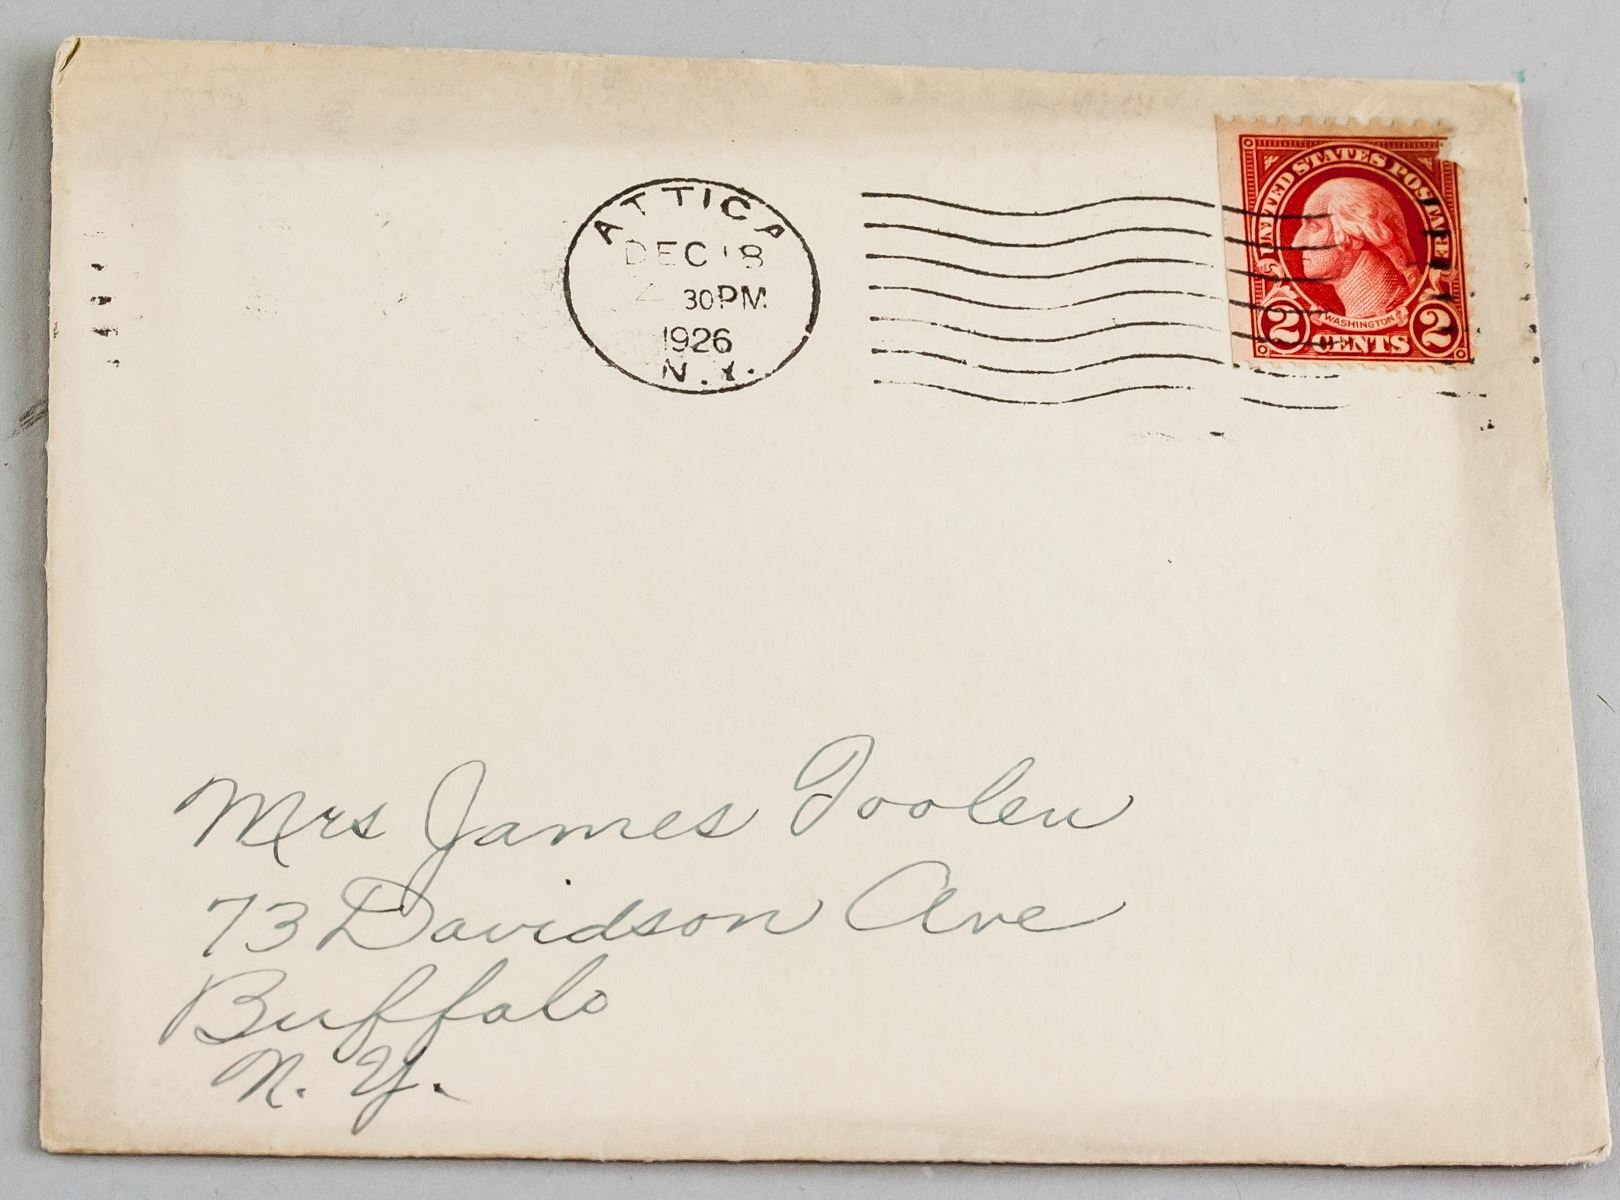 ATTICA
DEC 18
30 PM
1926
N.Y.
UNITED STATES POSTAGE
WASHINGTON
2 CENTS 2
Mrs James Toolen
73 Davidson Ave
Buffalo
N. Y.